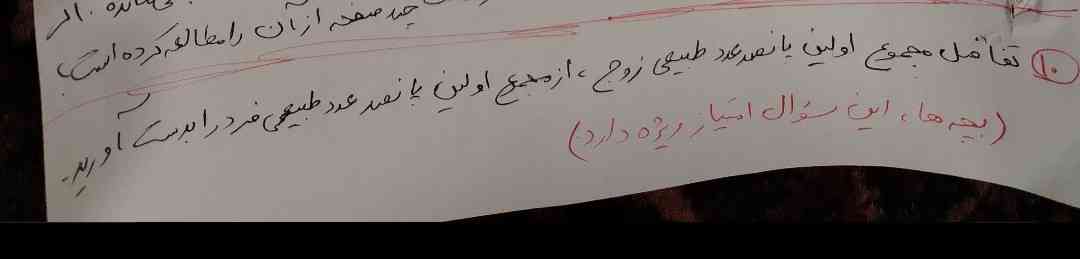 چند صفحه از آن را مطالعه کرده است؟
۱۰ تفاضل مجموع اولین پانصد عدد طبیعی زوج، از مجموع اولین پانصد عدد طبیعی فرد را بدست آورید.
(بچه ها، این سؤال امتیاز ویژه دارد)